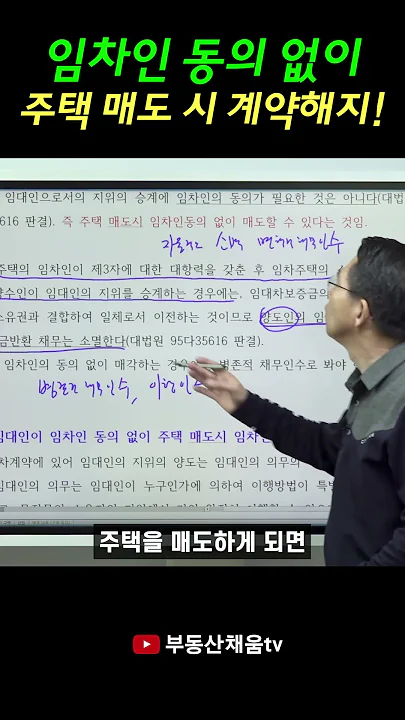 임차인 동의 없이
주택 매도 시 계약해지!
임대인으로서의 지위의 승계에 임차인의 동의가 필요한 것은 아니다(대법
5616 판결). 즉 주택 매도시 임차인동의 없이 매도할 수 있다는 것임.
면책적 채무인수
주택의 임차인이 제3자에 대한 대항력을 갖춘 후 임차주택의
양수인이 임대인의 지위를 승계하는 경우에는, 임대차보증금의
소유권과 결합하여 일체로서 이전하는 것이므로 양도인의 임
금반환 채무는 소멸한다(대법원 95다35616 판결).
임차인의 동의 없이 매각하는 경우 병존적 채무인수로 봐야
병존적 채무인수, 이행인수
임대인이 임차인 동의 없이 주택 매도시 임차인
차계약에 있어 임대인의 지위의 양도는 임대인의 의무의
임대인의 의무는 임대인이 누구인가에 의하여 이행방법이 특별
주택을 매도하게 되면
부동산채움tv